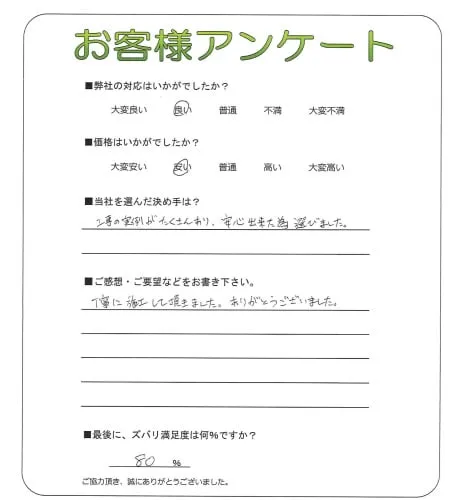 お客様アンケート
■弊社の対応はいかがでしたか？
大変良い 良い 普通 不満 大変不満
■価格はいかがでしたか？
大変安い 安い 普通 高い 大変高い
■当社を選んだ決め手は？
工事の実例がたくさんあり、安心出来た為 選びました。
■ご感想・ご要望などをお書き下さい。
丁寧に施工して頂きました。ありがとうございました。
■最後に、ズバリ満足度は何%ですか？
80 %
ご協力頂き、誠にありがとうございました。